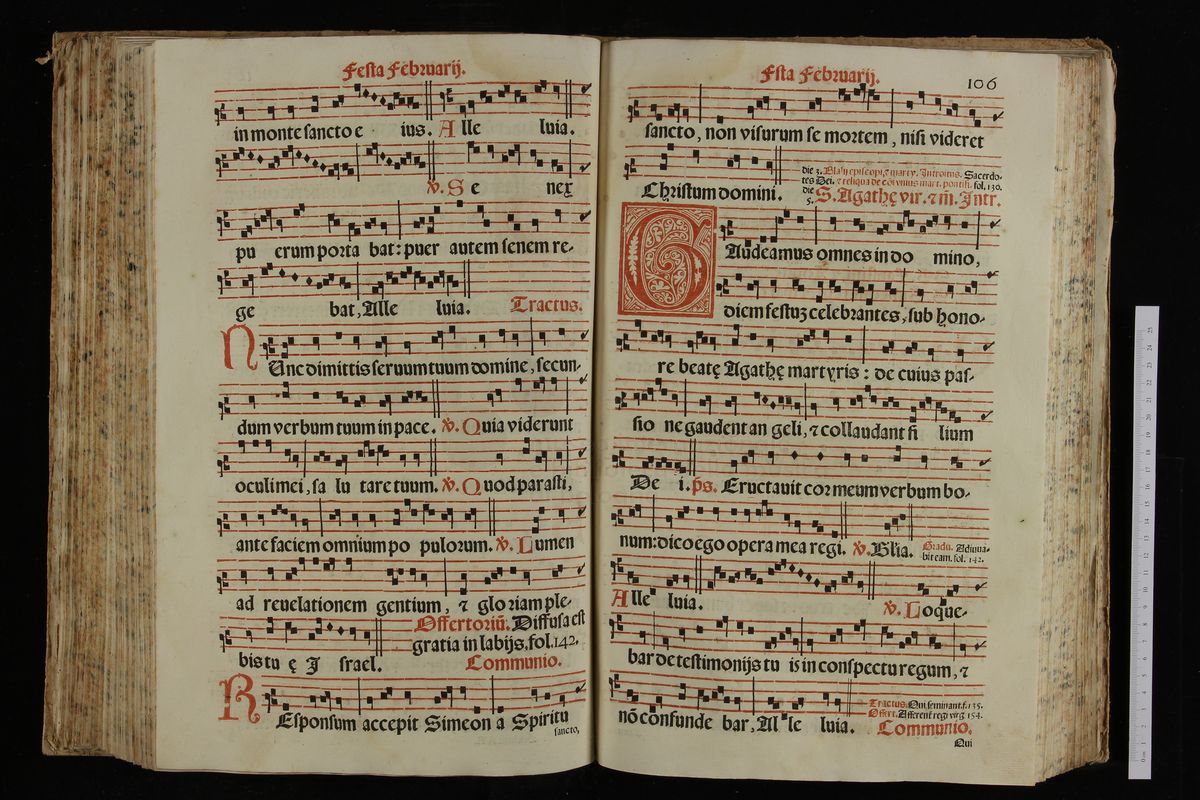 Festa Februarij.
in monte sancto e ius. Alle luia.
℣. Se nex
pu erum porta bat: puer autem senem re-
ge bat, Alle luia. Tractus.
NUnc dimittis seruum tuum domine, secun-
dum verbum tuum in pace. ℣. Quia viderunt
oculi mei, sa lu tare tuum. ℣. Quod parasti,
ante faciem omnium po pulorum. ℣. Lumen
ad reuelationem gentium, ⁊ gloriam ple-
Offertoriũ. Diffusa est
gratia in labijs. fol. 142.
bis tu ę Israel. Communio.
REsponsum accepit Simeon a Spiritu
sancto,
Fsta Februarij. 106
sancto, non visurum se mortem, nisi videret
die 3. Blasij episcopi, ⁊ marty. Introitus. Sacerdo-
tes Dei. ⁊ reliqua de cõi vnius mart. pontifi. fol. 130.
Christum domini. die 5. S. Agathę vir. ⁊ m̃. Intr.
GAudeamus omnes in do mino,
diem festuꝫ celebrantes, sub hono-
re beatę Agathę martyris: de cuius pas-
sio ne gaudent an geli, ⁊ collaudant fi lium
De i. p̃s. Eructauit cor meum verbum bo-
num: dico ego opera mea regi. ℣. Gl̃ia. Gradu. Adiuua-
bit eam. fol. 142.
Alle luia. ℣. Loque-
bar de testimonijs tu is in conspectu regum, ⁊
nõ confunde bar, Al le luia. Tractus. Qui seminant. f. 135.
Offert. Afferent regi virg. 154.
Communio.
Qui